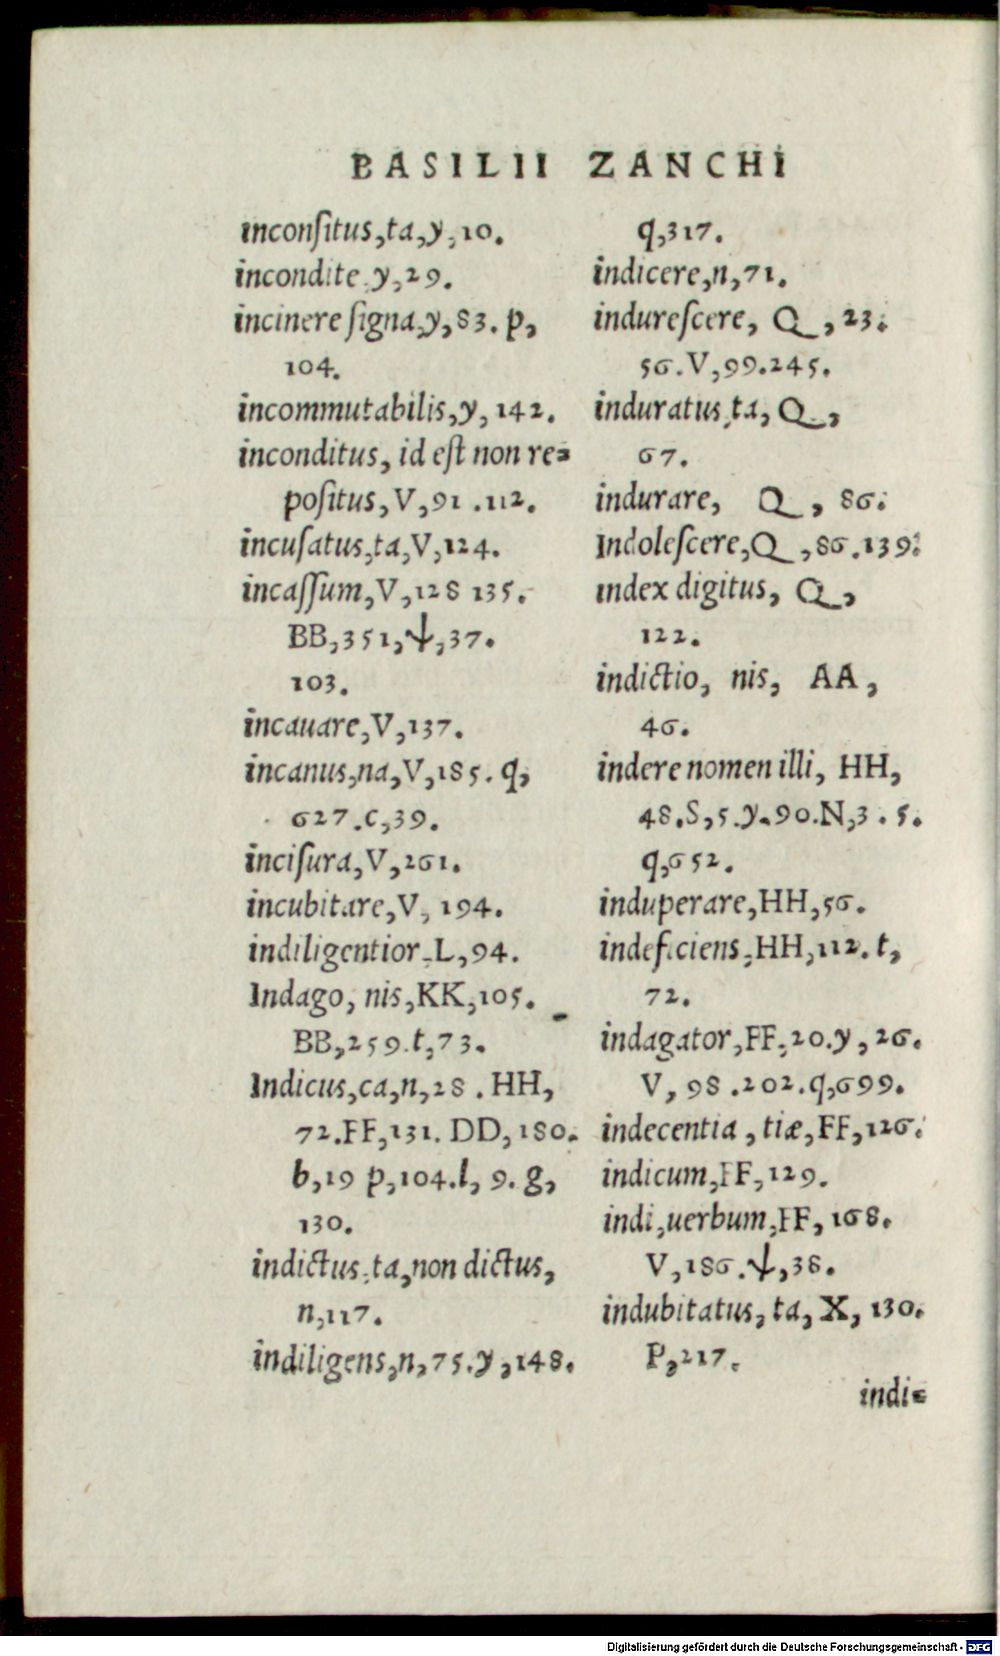 BASILII ZANCHI
inconſitus,ta,y,10.
incondite y,29.
incinere ſigna,y,83. p,
104.
incommutabilis,y, 142.
inconditus, id eſt non re=
poſitus, V,91 .112.
incuſatus,ta,V,124.
incaſſum,V,128 135.
BB,351,ψ,37.
103.
incauare,V,137.
incanus,na,V,185. q,
627.c,39.
inciſura,V,261.
incubitare,V, 194.
indiligentior,L,94.
Indago, nis,KK,105.
BB,259.t,73.
Indicus,ca,n,28 . HH,
72.FF,131. DD,180.
b,19 p,104.l, 9. g,
130.
indictus,ta,non dictus,
n,117.
indiligens,n,75.y,148.
q,317.
indicere,n,71.
indureſcere, Q,23.
56.V,99.245.
induratus,ta, Q,
67.
indurare, Q, 86.
Indoleſcere,Q,86.139.
index digitus, Q,
122.
indictio, nis, AA,
46.
indere nomen illi, HH,
48.S,5.y.90.N,3 . 5.
q,652.
induperare,HH,56.
indeficiens,HH,112. t,
72.
indagator,FF,20.y, 26.
V, 98 .202.q,699.
indecentia, tiæ,FF,126.
indicum,FF,129.
indi,uerbum,FF, 168.
V,186.ψ,38.
indubitatus, ta, X, 130.
P,217.
indi=
Digitalisierung gefördert durch die Deutsche Forschungsgemeinschaft - DFG